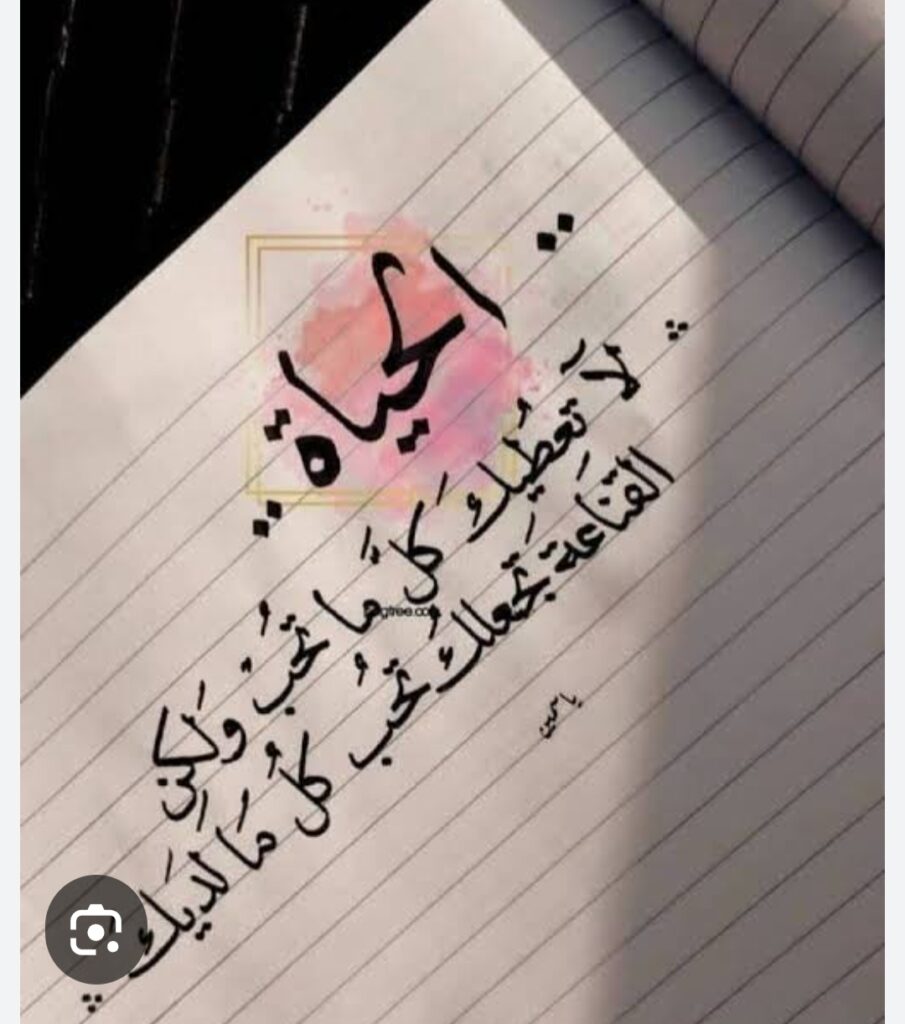 الحياة
لَا تُعطِيكَ كلَّ مَا تُحبُ وَلَكِن
القنَاعَة تَجعلكُ تُحبُ كلُ مَا لديَك
ياسمين